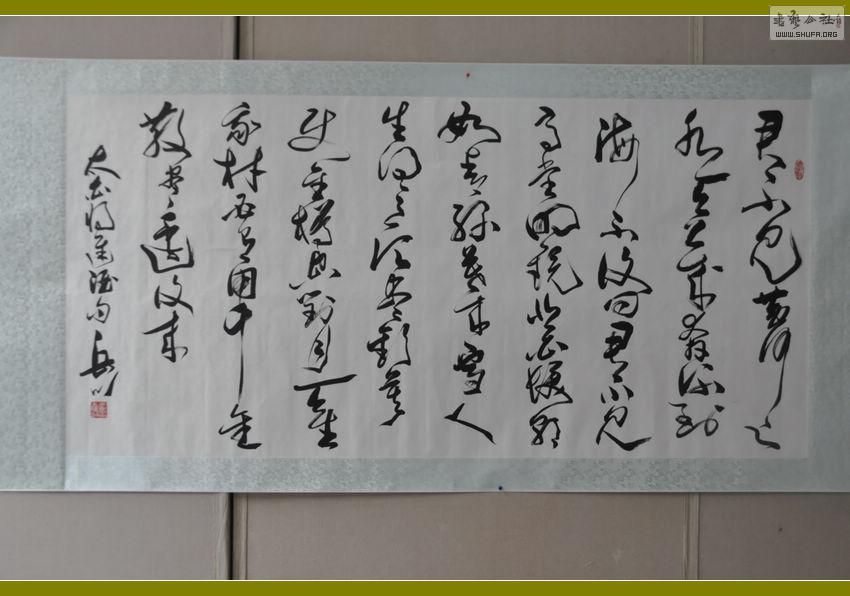 君不見黄河之
水天上來奔流到
海不復回君不見
高堂明鏡悲白髮朝
如青絲暮成雪人
生得意須盡歡莫
使金樽空對月天生
我材必有用千金
散盡還復來
太白將進酒句
書法公社
WWW.SHUFA.ORG